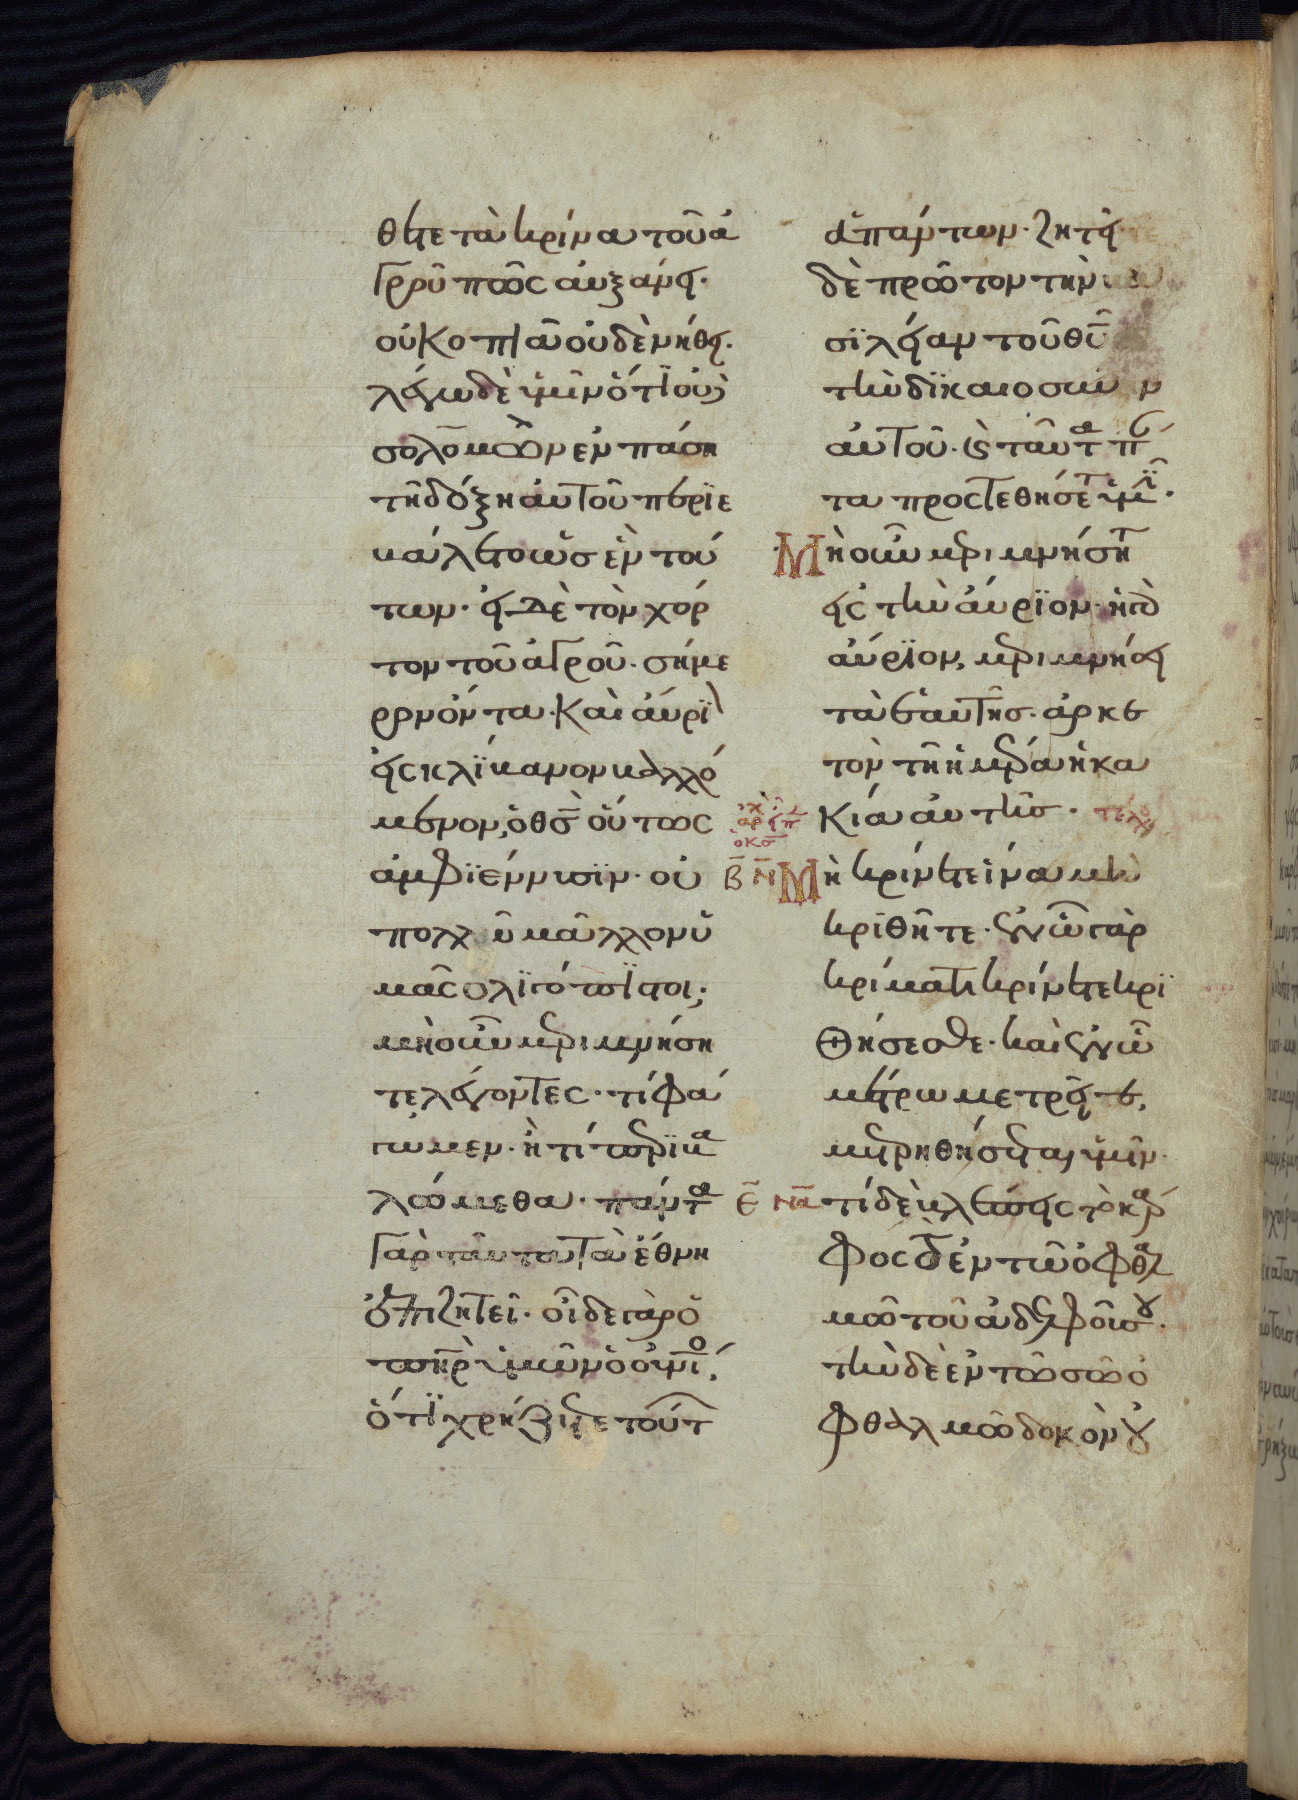 θετε τὰ κρίνα τοῦ ἀ
γροῦ πῶς αὐξάνει·
οὐ κοπιᾶ οὐδὲ νήθει·
λέγω δὲ ὑμῖν ὅτι οὐδὲ
σολομὼν ἐν πάση
τῆ δόξη αὐτοῦ περιε
βάλετο ὡς ἓν τού
των· εἰ δὲ τὸν χόρ
τον τοῦ ἀγροῦ· σήμε
ρον ὄντα· καὶ αὔρι
εἰς κλίβανον βαλλό
μενον, ὁ θς̅ οὕτως
ἀμφιέννυσιν· οὐ
πολλῶ μᾶλλον ὑ
μᾶς ὀλιγόπιστοι;
μὴ οὖν μεριμνήση
τε λέγοντες· τί φά
γωμεν· ἢ τί περιβα
λώμεθα· πάντα
γὰρ ταῦτα τὰ ἔθνη
ἐπιζητεῖ· οἶδε γὰρ ὁ
πηρ ὑμῶν ὁ οὐνιο,
ὅτι χρήζετε τούτ
ἁπάντων· ζητεῖ
δὲ πρῶτον τὴν
σιλείαν τοῦ θῦ
τὴν δικαιοσύν
αὐτοῦ· κ ταῦτα π
τα προστεθήσετ ὑμῖ·
Μὴ οὖν μεριμνήσητ
εἰς τὴν αὔριον· ἡ γὰρ
αὔριον, μεριμνήσει
τὰ ἑαυτῆς· ἀρκε
τὸν τῆ ἡμέρα ἡ κα
κία αὐτῆς· τέλος
Μὴ κρίνετε ἵνα μὴ
κριθῆτε· ἐν ὧ γὰρ
κρίματι κρίνετε κρι
θήσεσθε· καὶ ἐν ὧ
μέτρω μετρεῖτε,
μετρηθήσεται ὑμῖν·
τί δὲ βλέπεις τὸ κάρ
φος τὸ ἐν τῶ ὀφθαλ
μῶ τοῦ ἀδελφοῦ σου·
τὴν δὲ ἐν τῶ σῶ ὀ
φθαλμῶ δοκὸν οὐ